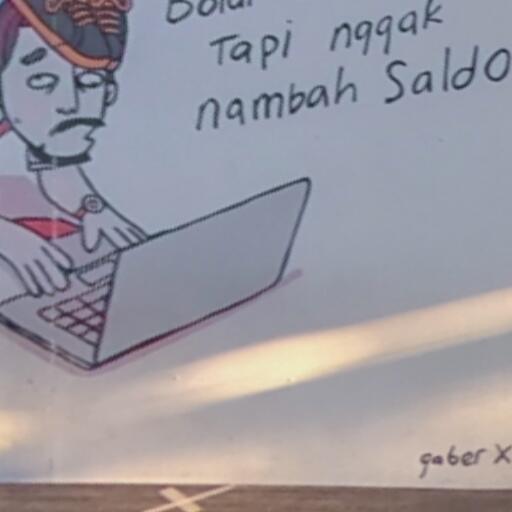 Tapi nggak
nambah Saldo
gaber X